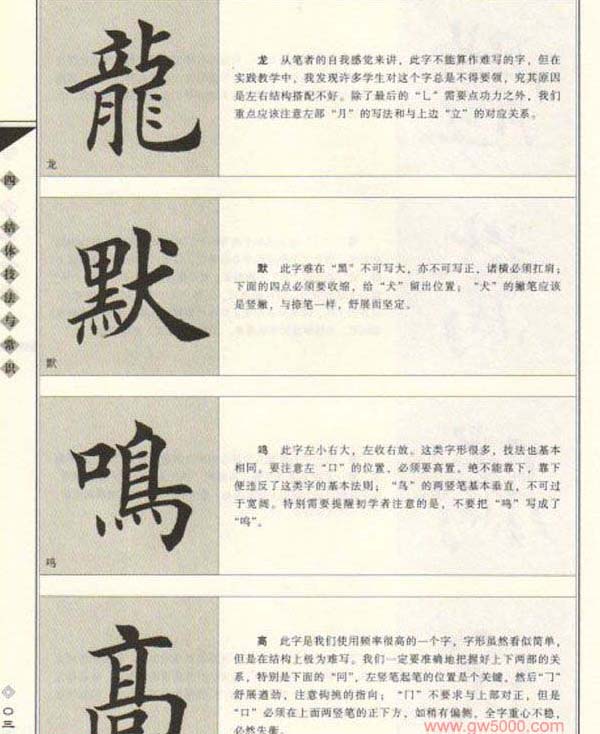 龍
龙
龙 从笔者的自我感觉来讲，此字不能算作难写的字，但在
实践教学中，我发现许多学生对这个字总是不得要领，究其原因
是左右结构搭配不好。除了最后的“乚”需要点功力之外，我们
重点应该注意左部“月”的写法和与上边“立”的对应关系。
四 结体技法与常识
默
默
默 此字难在“黑”不可写大，亦不可写正，诸横必须扛肩；
下面的四点必须要收缩，给“犬”留出位置；“犬”的撇笔应该
是竖撇，与捺笔一样，舒展而坚定。
鳴
鸣
鸣 此字左小右大，左收右放。这类字形很多，技法也基本
相同。要注意左“口”的位置，必须要高置，绝不能靠下，靠下
便违反了这类字的基本法则；“鸟”的两竖笔基本垂直，不可过
于宽阔。特别需要提醒初学者注意的是，不要把“鸣”写成了
“呜”。
高
高 此字是我们使用频率很高的一个字，字形虽然看似简单，
但是在结构上极为难写。我们一定要准确地把握好上下两部的关
系，特别是下面的“冋”，左竖笔起笔的位置是个关键，然后“㇆”
舒展遒劲，注意钩挑的指向；“冂”不要求与上部对正，但是
“口”必须在上面两竖笔的正下方，如稍有偏侧，全字重心不稳，
必然失衡。
〇三
www.gw5000.com